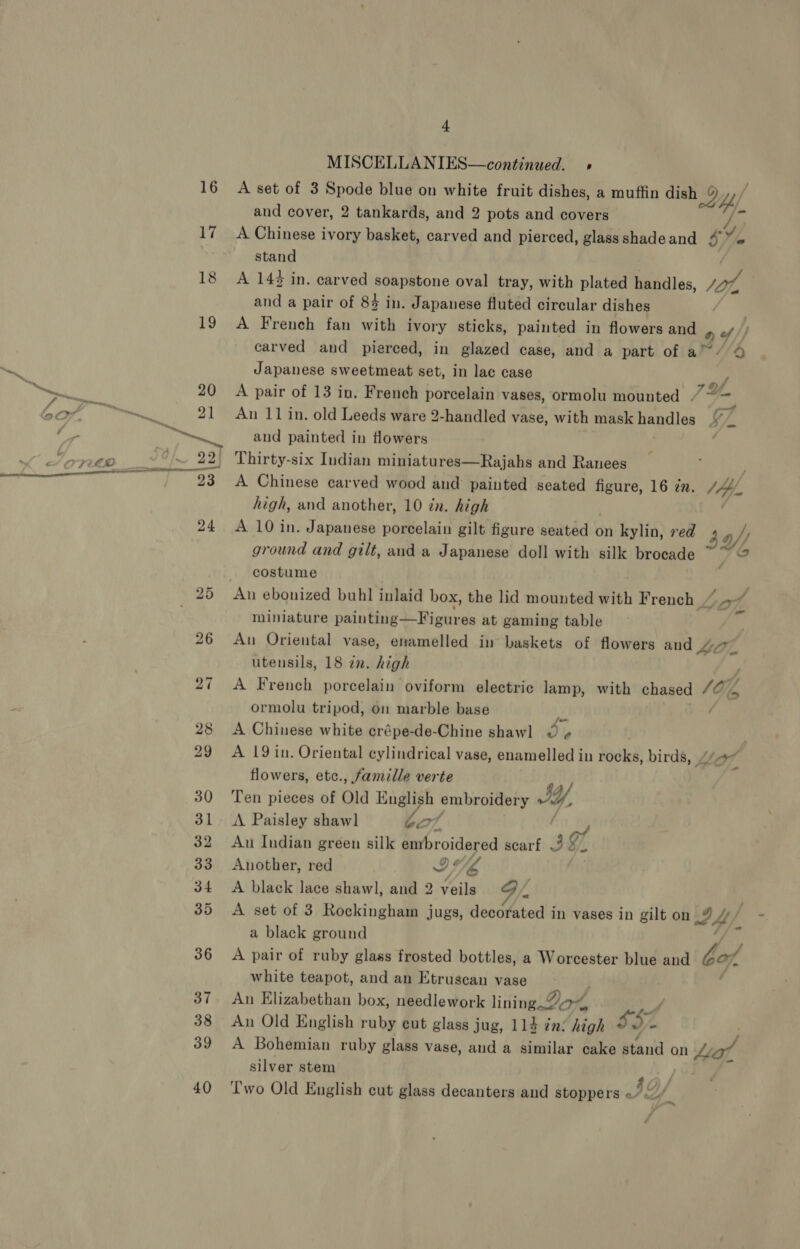 4
MISCELLANIES—continued.
16 A set of 3 Spode blue on white fruit dishes, a muffin dish
and cover, 2 tankards, and 2 pots and covers
17 A Chinese ivory basket, carved and pierced, glass shade and
stand
18 A 14½ in. carved soapstone oval tray, with plated handles,
and a pair of 8½ in. Japanese fluted circular dishes
19 A French fan with ivory sticks, painted in flowers and
carved and pierced, in glazed case, and a part of a
Japanese sweetmeat set, in lac case
20 A pair of 13 in. French porcelain vases, ormolu mounted
21 An 11 in. old Leeds ware 2-handled vase, with mask handles
and painted in flowers
22 Thirty-six Indian miniatures—Rajahs and Ranees
23 A Chinese carved wood and painted seated figure, 16 in.
high, and another, 10 in. high
24 A 10 in. Japanese porcelain gilt figure seated on kylin, red
ground and gilt, and a Japanese doll with silk brocade
costume
25 An ebonized buhl inlaid box, the lid mounted with French
miniature painting—Figures at gaming table
26 An Oriental vase, enamelled in baskets of flowers and
utensils, 18 in. high
27 A French porcelain oviform electric lamp, with chased
ormolu tripod, on marble base
28 A Chinese white crêpe-de-Chine shawl
29 A 19 in. Oriental cylindrical vase, enamelled in rocks, birds,
flowers, etc., famille verte
30 Ten pieces of Old English embroidery
31 A Paisley shawl
32 An Indian green silk embroidered scarf
33 Another, red
34 A black lace shawl, and 2 veils
35 A set of 3 Rockingham jugs, decorated in vases in gilt on
a black ground
36 A pair of ruby glass frosted bottles, a Worcester blue and
white teapot, and an Etruscan vase
37 An Elizabethan box, needlework lining
38 An Old English ruby cut glass jug, 11½ in. high
39 A Bohemian ruby glass vase, and a similar cake stand on
silver stem
40 Two Old English cut glass decanters and stoppers